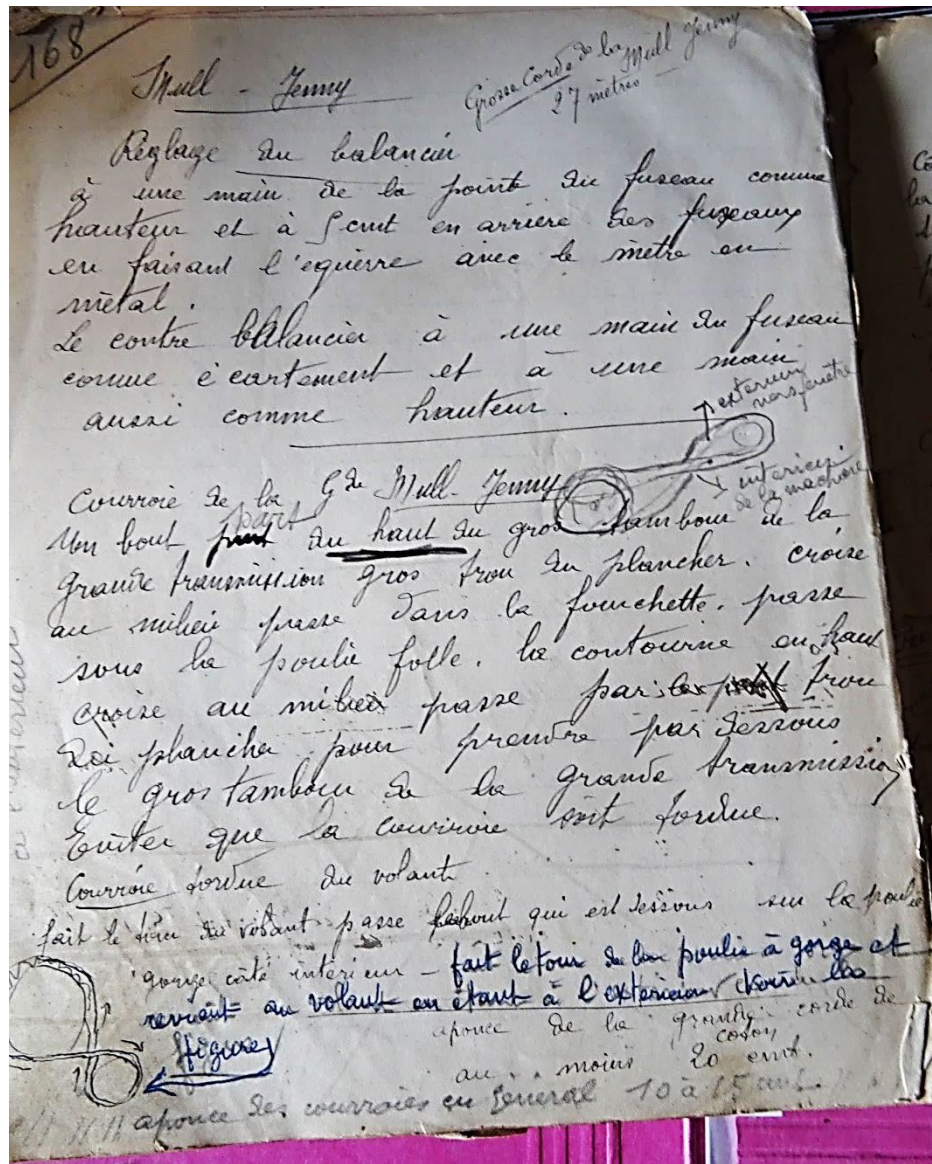 168
Mull - Jenny
Grosse Corde de la Mull Jenny
27 mètres
Réglage du balancier
à une main de la pointe du fuseau comme
hauteur et à 5 cmt en arrière des fuseaux
en faisant l'equierre avec le mètre en
mètal.
Le contre balancier à une main du fuseau
comme écartement et à une main
aussi comme hauteur.
exterieur
interieur
de la machine
Courroie de la Gde Mull-Jenny
part
Un bout du haut du gros tambour de la
grande transmission gros trou du plancher. croise
au milieu passe dans la fourchette. passe
sous la poulie folle. la contourne en haut
croise au milieu passe par trou
plancher pour prendre par dessous
le gros tambour de la grande transmission
Eviter que la courroie soit tordue.
Courroie tordue du volant
fait le tour du volant passe qui est dessous sur la poulie
gorge côté intérieur - fait le tour de la poulie à gorge et
revient au volant en étant à l'extérieur (voir la
figure)
aponce de la grande corde de
coton
au moins 20 cmt.
aponce des courroies en général 10 à 15 cmt.